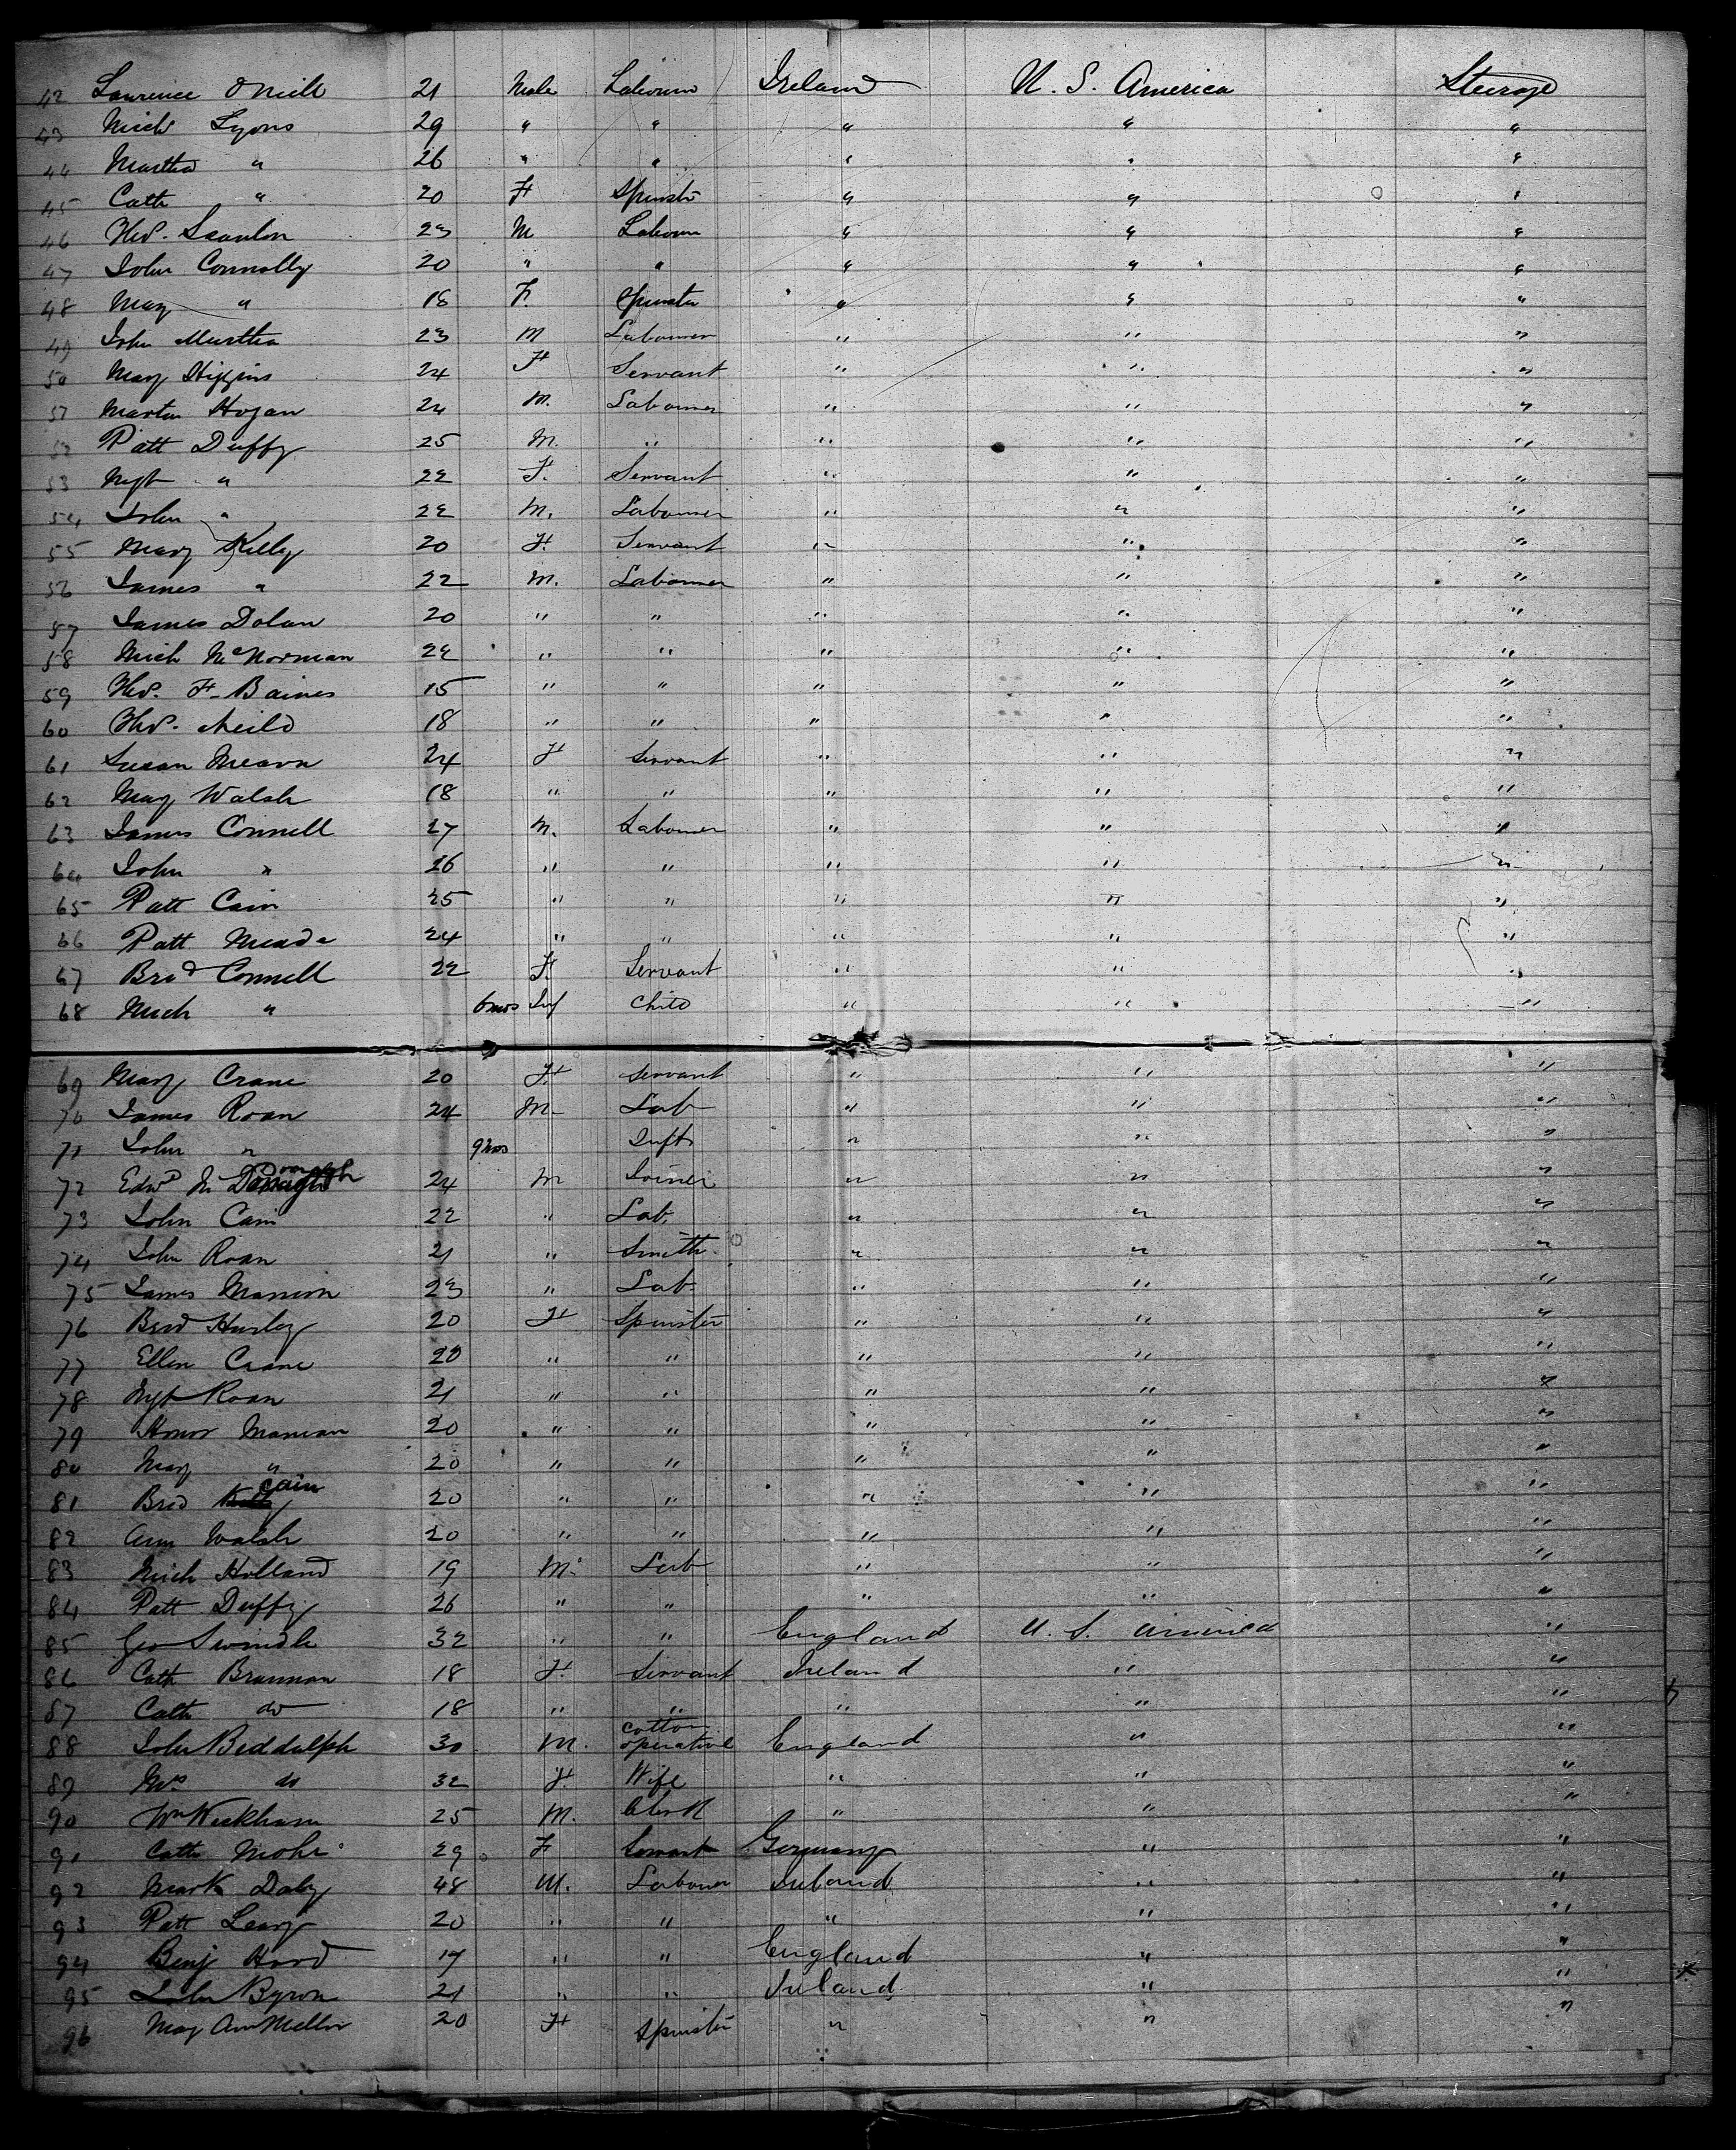 42 Lawrence O'Neill 21 Male Labourer Ireland U. S. America Steerage
43 Mich Lyons 29 " " " " "
44 Martha " 26 " " " " "
45 Cath " 20 F Spinstr " " "
46 Thos. Scanlon 23 M Labourer " " "
47 John Connolly 20 " " " " "
48 Mary " 18 F. Spinster " " "
49 John Murtha 23 M Labourer " " "
50 Mary Higgins 24 F Servant " " "
51 Martin Hogan 24 M. Labourer " " "
52 Patt Duffy 25 M. " " " "
53 Mgt " 22 F. Servant " " "
54 John " 22 M. Labourer " " "
55 Mary Kelly 20 F. Servant " " "
56 James " 22 M. Labourer " " "
57 James Dolan 20 " " " " "
58 Mich McNorman 22 " " " " "
59 Thos. F. Baines 15 " " " " "
60 Thos. Neild 18 " " " " "
61 Susan Meara 24 F Servant " " "
62 Mary Walsh 18 " " " " "
63 James Connell 27 M. Labourer " " "
64 John " 26 " " " " "
65 Patt Cain 25 " " " " "
66 Patt Meade 24 " " " " "
67 Brid Connell 22 F. Servant " " "
68 Mich " 6 mos Inf Child " " "
69 Mary Crane 20 F. Servant " " "
70 James Roan 24 M Lab " " "
71 John " 9 mos Inft " " "
72 Edwd Mc 24 M Joiner " " "
73 John Cain 22 " Lab. " " "
74 John Roan 21 " Smith. " " "
75 James Mannion 23 " Lab. " " "
76 Brid Hurley 20 F Spinster " " "
77 Ellen Crane 20 " " " " "
78 Mgt Roan 21 " " " " "
79 Honor Manian 20 " " " " "
80 Mary " 20 " " " " "
81 Brid Cain 20 " " " " "
82 Ann Walsh 20 " " " " "
83 Mich Holland 19 M. Lab " " "
84 Patt Duffy 26 " " " " "
85 Geo Swindle 32 " " England U. S. America "
86 Cath Brannan 18 F. Servant Ireland " "
87 Cath do 18 " " " " "
88 John Biddulph 30 M. cotton operative England " "
89 Mrs do 32 F. Wife " " "
90 Wm Wickham 25 M. Clerk " " "
91 Cath Mohr 29 F Servant Germany " "
92 Mark Daly 48 M. Labourer Ireland " "
93 Patt Leary 20 " " " " "
94 Benj Hood 17 " " England " "
95 John Byron 21 " " Ireland " "
96 Mary Ann Mellor 20 F Spinster " " "